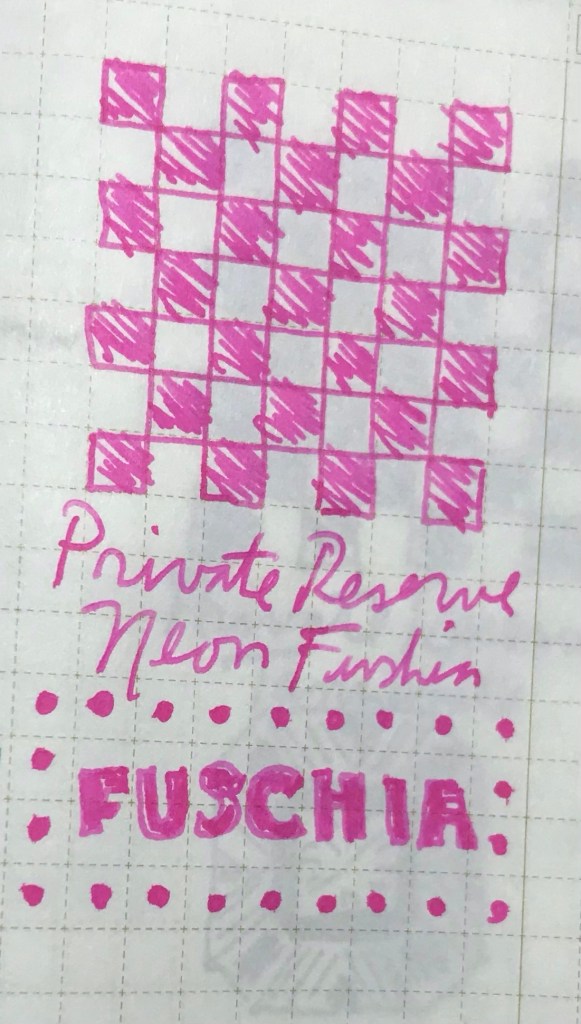 Private Reserve
Neon Fushia
FUSCHIA